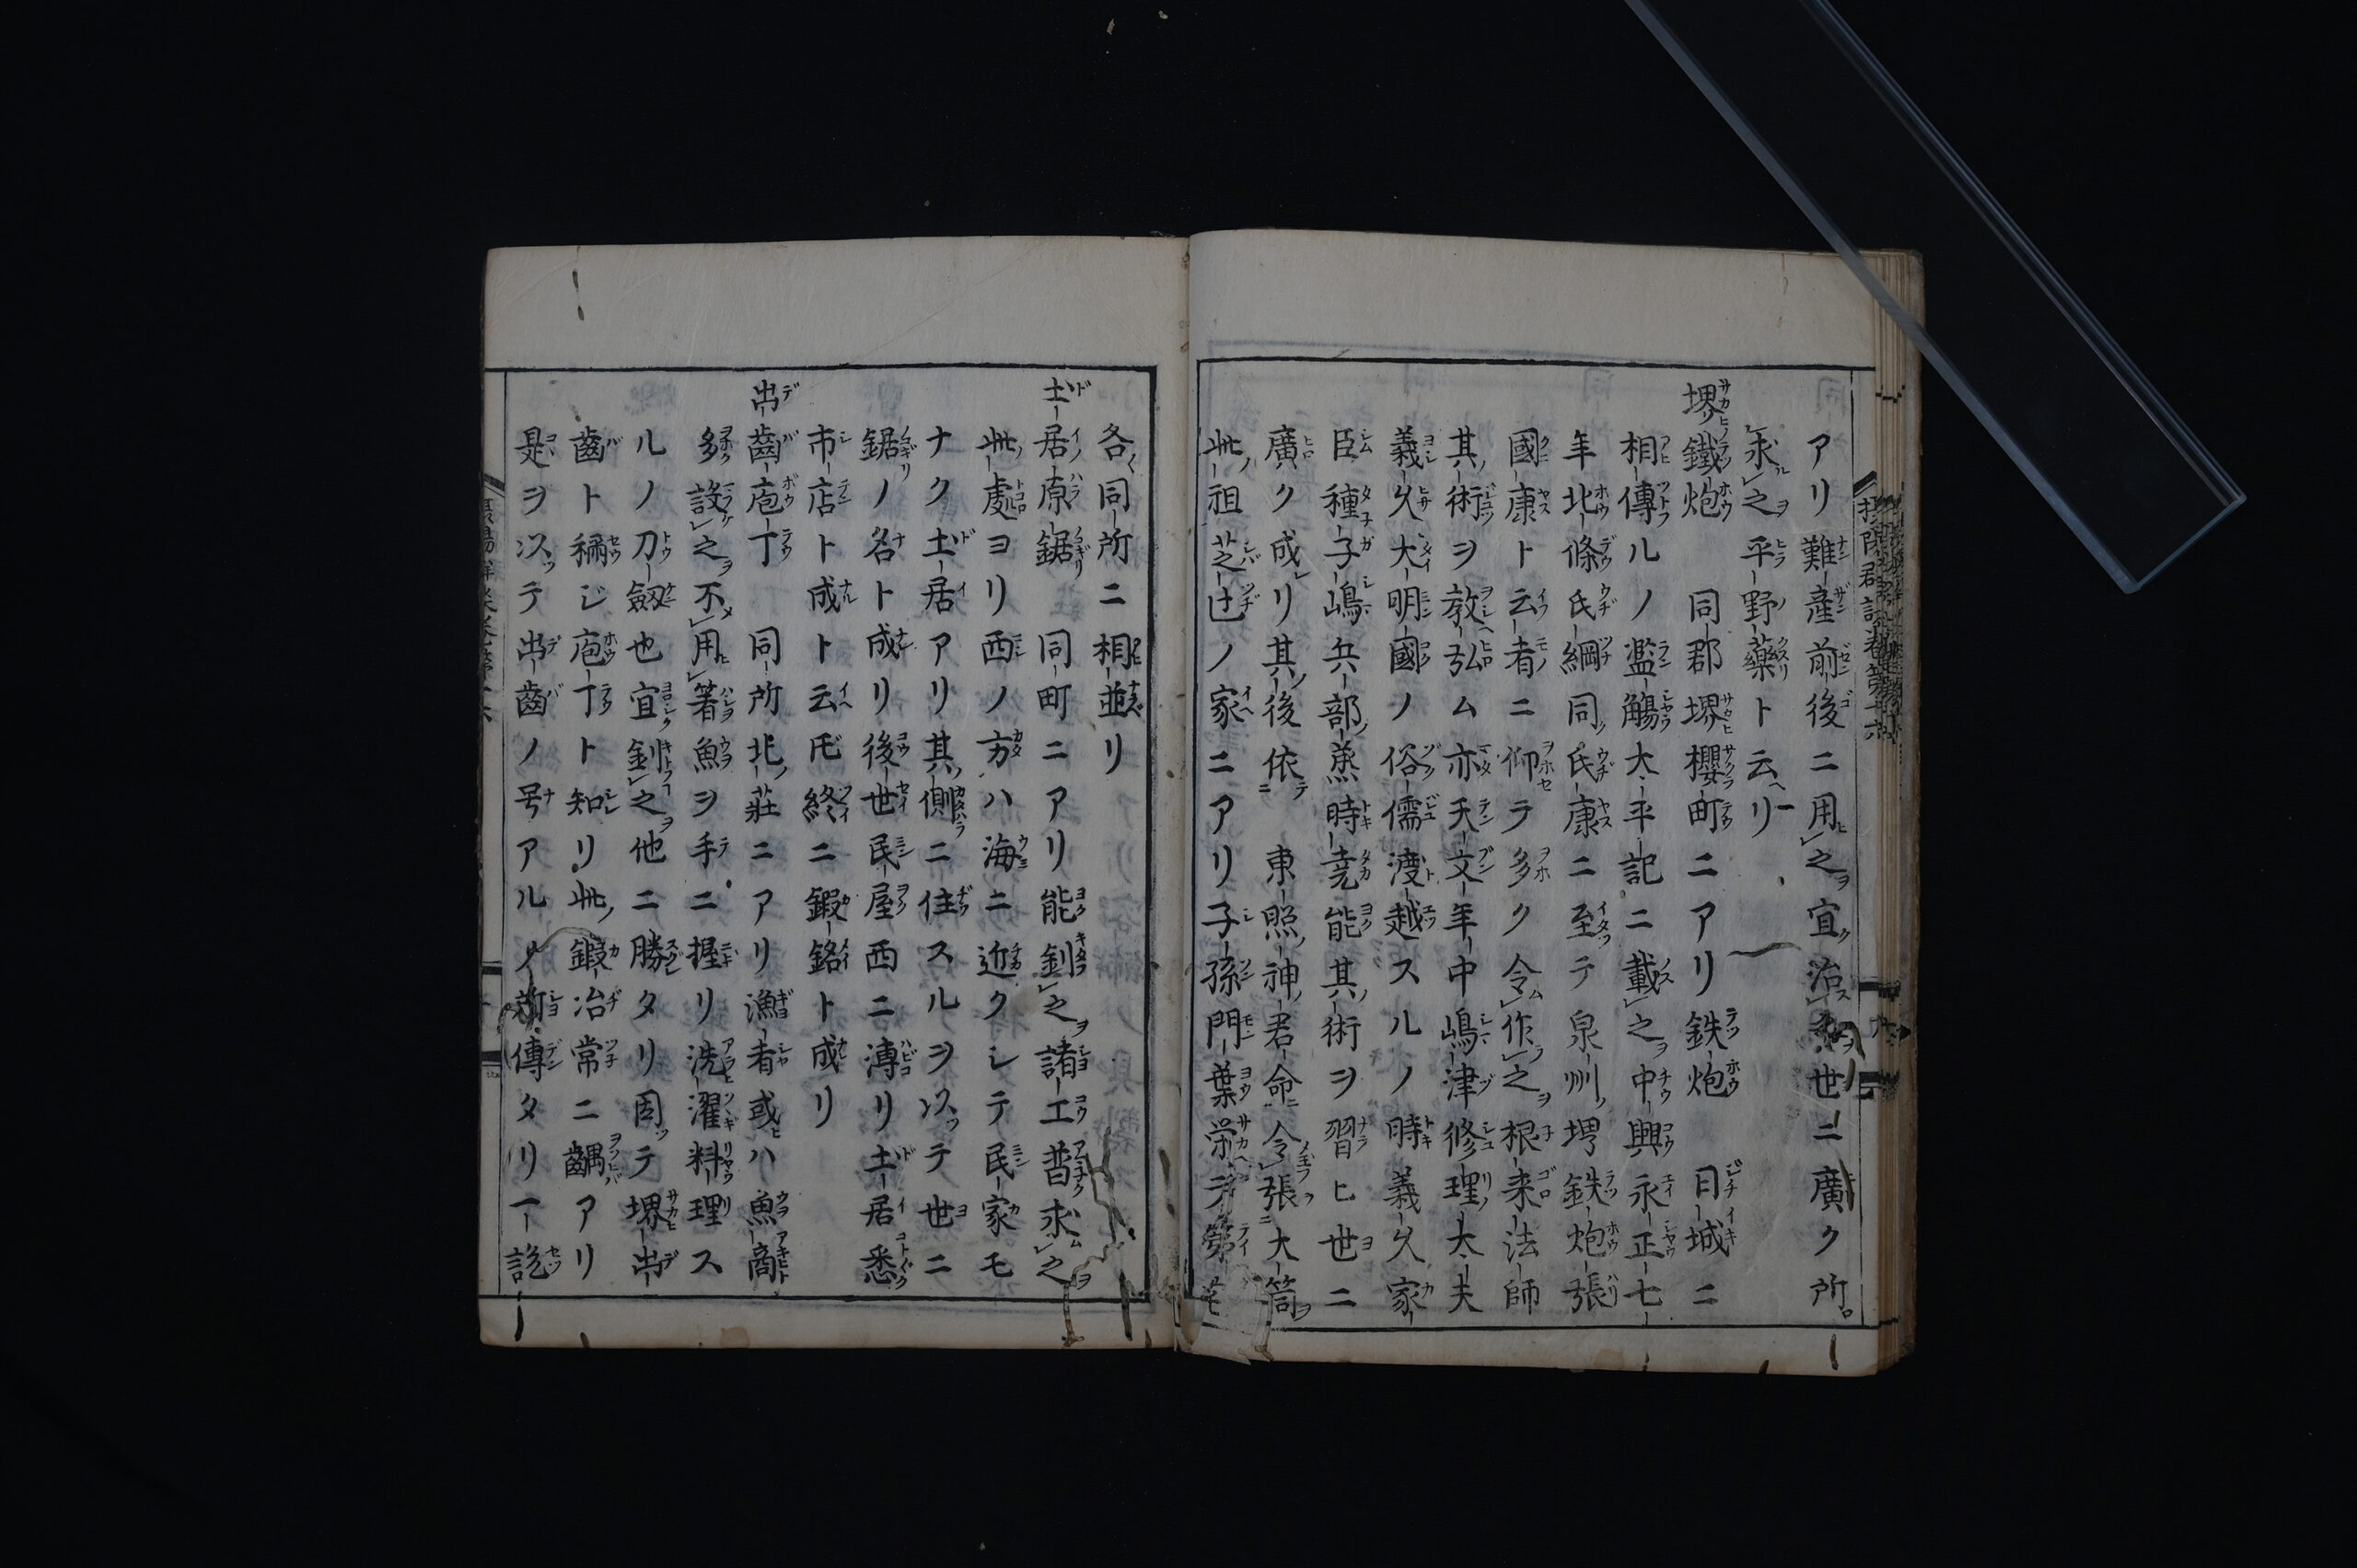 アリ難産前後ニ用之宜治世ニ廣ク所
求之平野藥ト云リ
堺鐵炮　同郡堺櫻町ニアリ鉄炮　日城ニ
相傳ルノ濫觴大平記ニ載之中興永正七
年北條氏綱同氏康ニ至テ泉州堺鉄炮張
國康ト云者ニ仰テ多ク令作之根来法師
其術ヲ教弘ム亦天文年中嶋津修理大夫
義久大明國ノ俗儒渡越スルノ時義久家
臣種子嶋兵部𣴎時尭能其術ヲ習ヒ世ニ
廣ク成リ其後依　東照神君命令張大筒
此祖芝辻ノ家ニアリ子孫門葉栄テ第
各同所ニ相並リ
土居原鋸　同町ニアリ能釗之諸工普求之
此處ヨリ西ノ方ハ海ニ近クシテ民家モ
ナク土居アリ其側ニ住スルヲ以テ世ニ
鋸ノ名ト成リ後世民屋西ニ溥リ土居悉
市店ト成ト云𪜈終ニ鍛銘ト成リ
出齒庖丁　同所北荘ニアリ漁者或ハ魚商
多設之不用箸魚ヲ手ニ握リ洗濯料理ス
ルノ刀劔也宜釗之他ニ勝タリ因テ堺出
齒ト稱シ庖丁ト知リ此鍛冶常ニ齵アリ
是ヲ以テ出齒ノ号アルノ所傳タリ一説